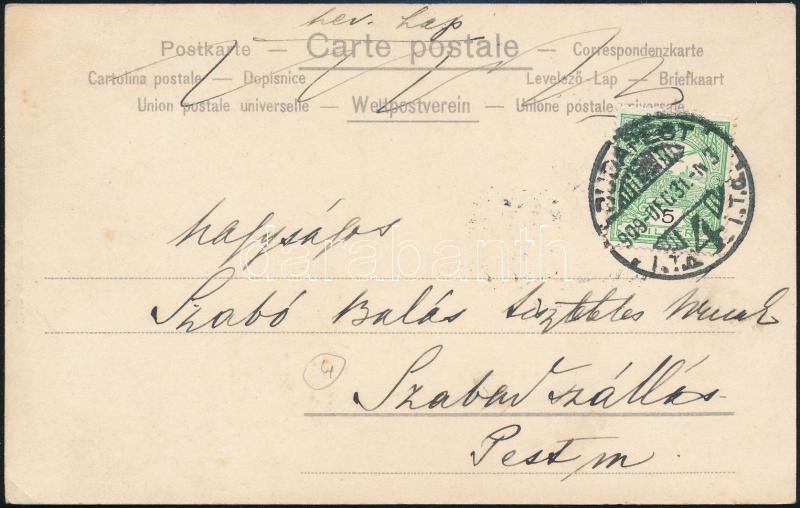 lev. lap
Postkarte – Carte postale – Correspondenzkarte
Cartolina postale – Dopisnice Levelező-Lap – Briefkaart
Union postale universelle – Weltpostverein – Unione postale universale
BUDAPEST
909 DEC 31
5
4
I.T.A
darabanth
nagyságos
Szabó Balás tiszteletes Úrnak
4
Szabadszállás
Pest m.